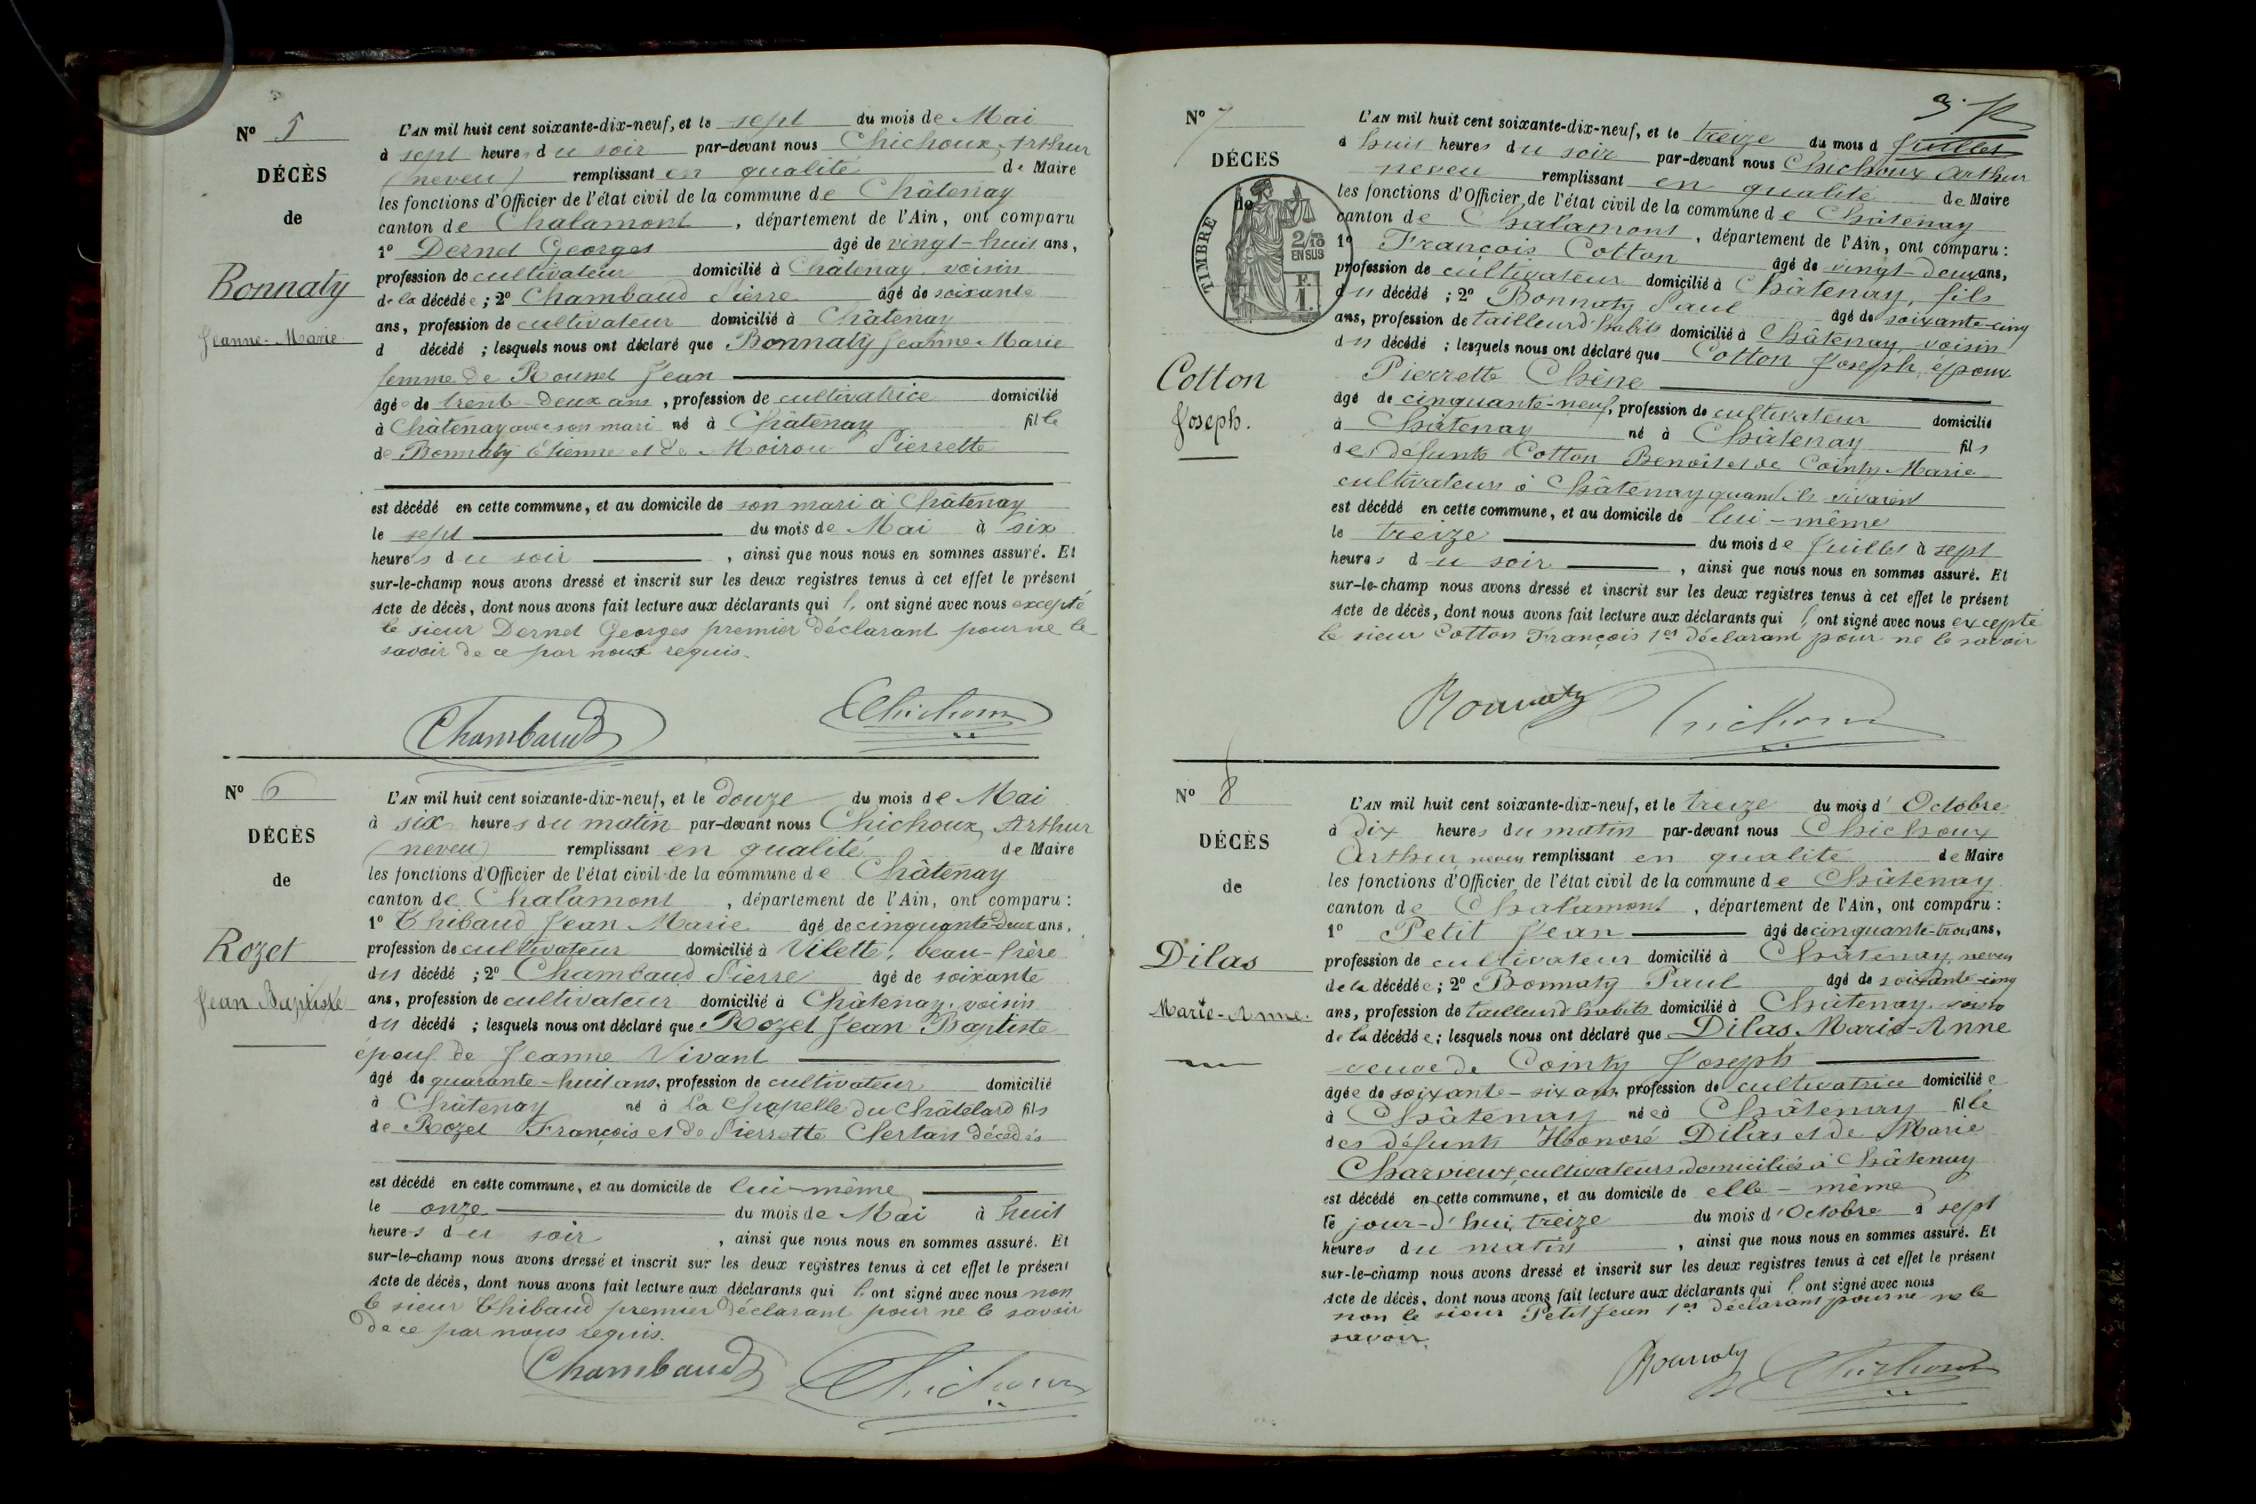 Nº 5
DÉCÈS
de
Bonnaty
Jeanne-Marie
L'AN mil huit cent soixante-dix-neuf, et le sept du mois de Mai
à sept heures du soir par-devant nous Chichoux, Arthur
(neveu) remplissant en qualité de Maire
les fonctions d'Officier de l'état civil de la commune de Châtenay
canton de Chalamont, département de l'Ain, ont comparu
1º Dernet Georges âgé de vingt-huit ans,
profession de cultivateur domicilié à Châtenay, voisin
de la décédée; 2º Chambaud Pierre âgé de soixante
ans, profession de cultivateur domicilié à Châtenay
d décédé ; lesquels nous ont déclaré que Bonnaty Jeanne-Marie
femme de Rousset Jean
âgée de trente-deux ans, profession de cultivatrice domicilié
à Châtenay avec son mari né à Châtenay fille
de Bonnaty Étienne et de Moirou Pierrette
est décédé en cette commune, et au domicile de son mari à Châtenay
le sept du mois de Mai à six
heures du soir, ainsi que nous nous en sommes assuré. Et
sur-le-champ nous avons dressé et inscrit sur les deux registres tenus à cet effet le présent
Acte de décès, dont nous avons fait lecture aux déclarants qui l'ont signé avec nous excepté
le sieur Dernet Georges premier déclarant pour ne le
savoir de ce par nous requis.
Chambaud Chichoux
Nº 6
DÉCÈS
de
Rozet
Jean Baptiste
L'AN mil huit cent soixante-dix-neuf, et le douze du mois de Mai
à six heures du matin par-devant nous Chichoux, Arthur
(neveu) remplissant en qualité de Maire
les fonctions d'Officier de l'état civil de la commune de Châtenay
canton de Chalamont, département de l'Ain, ont comparu :
1º Thibaud Jean Marie âgé de cinquante-deux ans,
profession de cultivateur domicilié à Vilette, beau-frère
du décédé ; 2º Chambaud Pierre âgé de soixante
ans, profession de cultivateur domicilié à Châtenay, voisin
du décédé ; lesquels nous ont déclaré que Rozet Jean Baptiste
époux de Jeanne Vivant
âgé de quarante-huit ans, profession de cultivateur domicilié
à Châtenay né à La Chapelle du Châtelard fils
de Rozet François et de Pierrette Chertan décédés
est décédé en cette commune, et au domicile de lui-même
le onze du mois de Mai à huit
heures du soir, ainsi que nous nous en sommes assuré. Et
sur-le-champ nous avons dressé et inscrit sur les deux registres tenus à cet effet le présent
Acte de décès, dont nous avons fait lecture aux déclarants qui l'ont signé avec nous non
le sieur Thibaud premier déclarant pour ne le savoir
de ce par nous requis.
Chambaud Chichoux
Nº 7
DÉCÈS
de
TIMBRE
2/10 EN SUS
F. 1.
Cotton
Joseph.
L'AN mil huit cent soixante-dix-neuf, et le treize du mois d Juillet
à huit heures du soir par-devant nous Chichoux Arthur
neveu remplissant en qualité de Maire
les fonctions d'Officier de l'état civil de la commune de Châtenay
canton de Chalamont, département de l'Ain, ont comparu :
1º François Cotton âgé de vingt-deux ans,
profession de cultivateur domicilié à Châtenay, fils
du décédé ; 2º Bonnaty Paul âgé de soixante-cinq
ans, profession de tailleur d'habits domicilié à Châtenay, voisin
du décédé ; lesquels nous ont déclaré que Cotton Joseph, époux
Pierrette Chêne
âgé de cinquante-neuf, profession de cultivateur domicilié
à Châtenay né à Châtenay fils
des défunts Cotton Benoît et de Cointy Marie
cultivateurs à Châtenay quand ils vivaient
est décédé en cette commune, et au domicile de lui-même
le treize du mois de Juillet à sept
heures du soir, ainsi que nous nous en sommes assuré. Et
sur-le-champ nous avons dressé et inscrit sur les deux registres tenus à cet effet le présent
Acte de décès, dont nous avons fait lecture aux déclarants qui l'ont signé avec nous excepté
le sieur Cotton François 1er déclarant pour ne le savoir
Bonnaty Chichoux
Nº 8
DÉCÈS
de
Dilas
Marie-Anne.
L'AN mil huit cent soixante-dix-neuf, et le treize du mois d'Octobre
à dix heures du matin par-devant nous Chichoux
Arthur neveu remplissant en qualité de Maire
les fonctions d'Officier de l'état civil de la commune de Châtenay
canton de Chalamont, département de l'Ain, ont comparu :
1º Petit Jean âgé de cinquante-trois ans,
profession de cultivateur domicilié à Châtenay, neveu
de la décédée; 2º Bonnaty Paul âgé de soixante-cinq
ans, profession de tailleur d'habits domicilié à Châtenay, voisin
de la décédée; lesquels nous ont déclaré que Dilas Marie-Anne
veuve de Cointy Joseph
âgée de soixante-six ans, profession de cultivatrice domiciliée
à Châtenay née à Châtenay fille
des défunts Honoré Dilas et de Marie
Charvieux, cultivateurs domiciliés à Châtenay
est décédé en cette commune, et au domicile de elle-même
le jour-d'hui treize du mois d'Octobre à sept
heures du matin, ainsi que nous nous en sommes assuré. Et
sur-le-champ nous avons dressé et inscrit sur les deux registres tenus à cet effet le présent
Acte de décès, dont nous avons fait lecture aux déclarants qui l'ont signé avec nous
non le sieur Petit Jean 1er déclarant pour ne ne le
savoir.
Bonnaty Chichoux